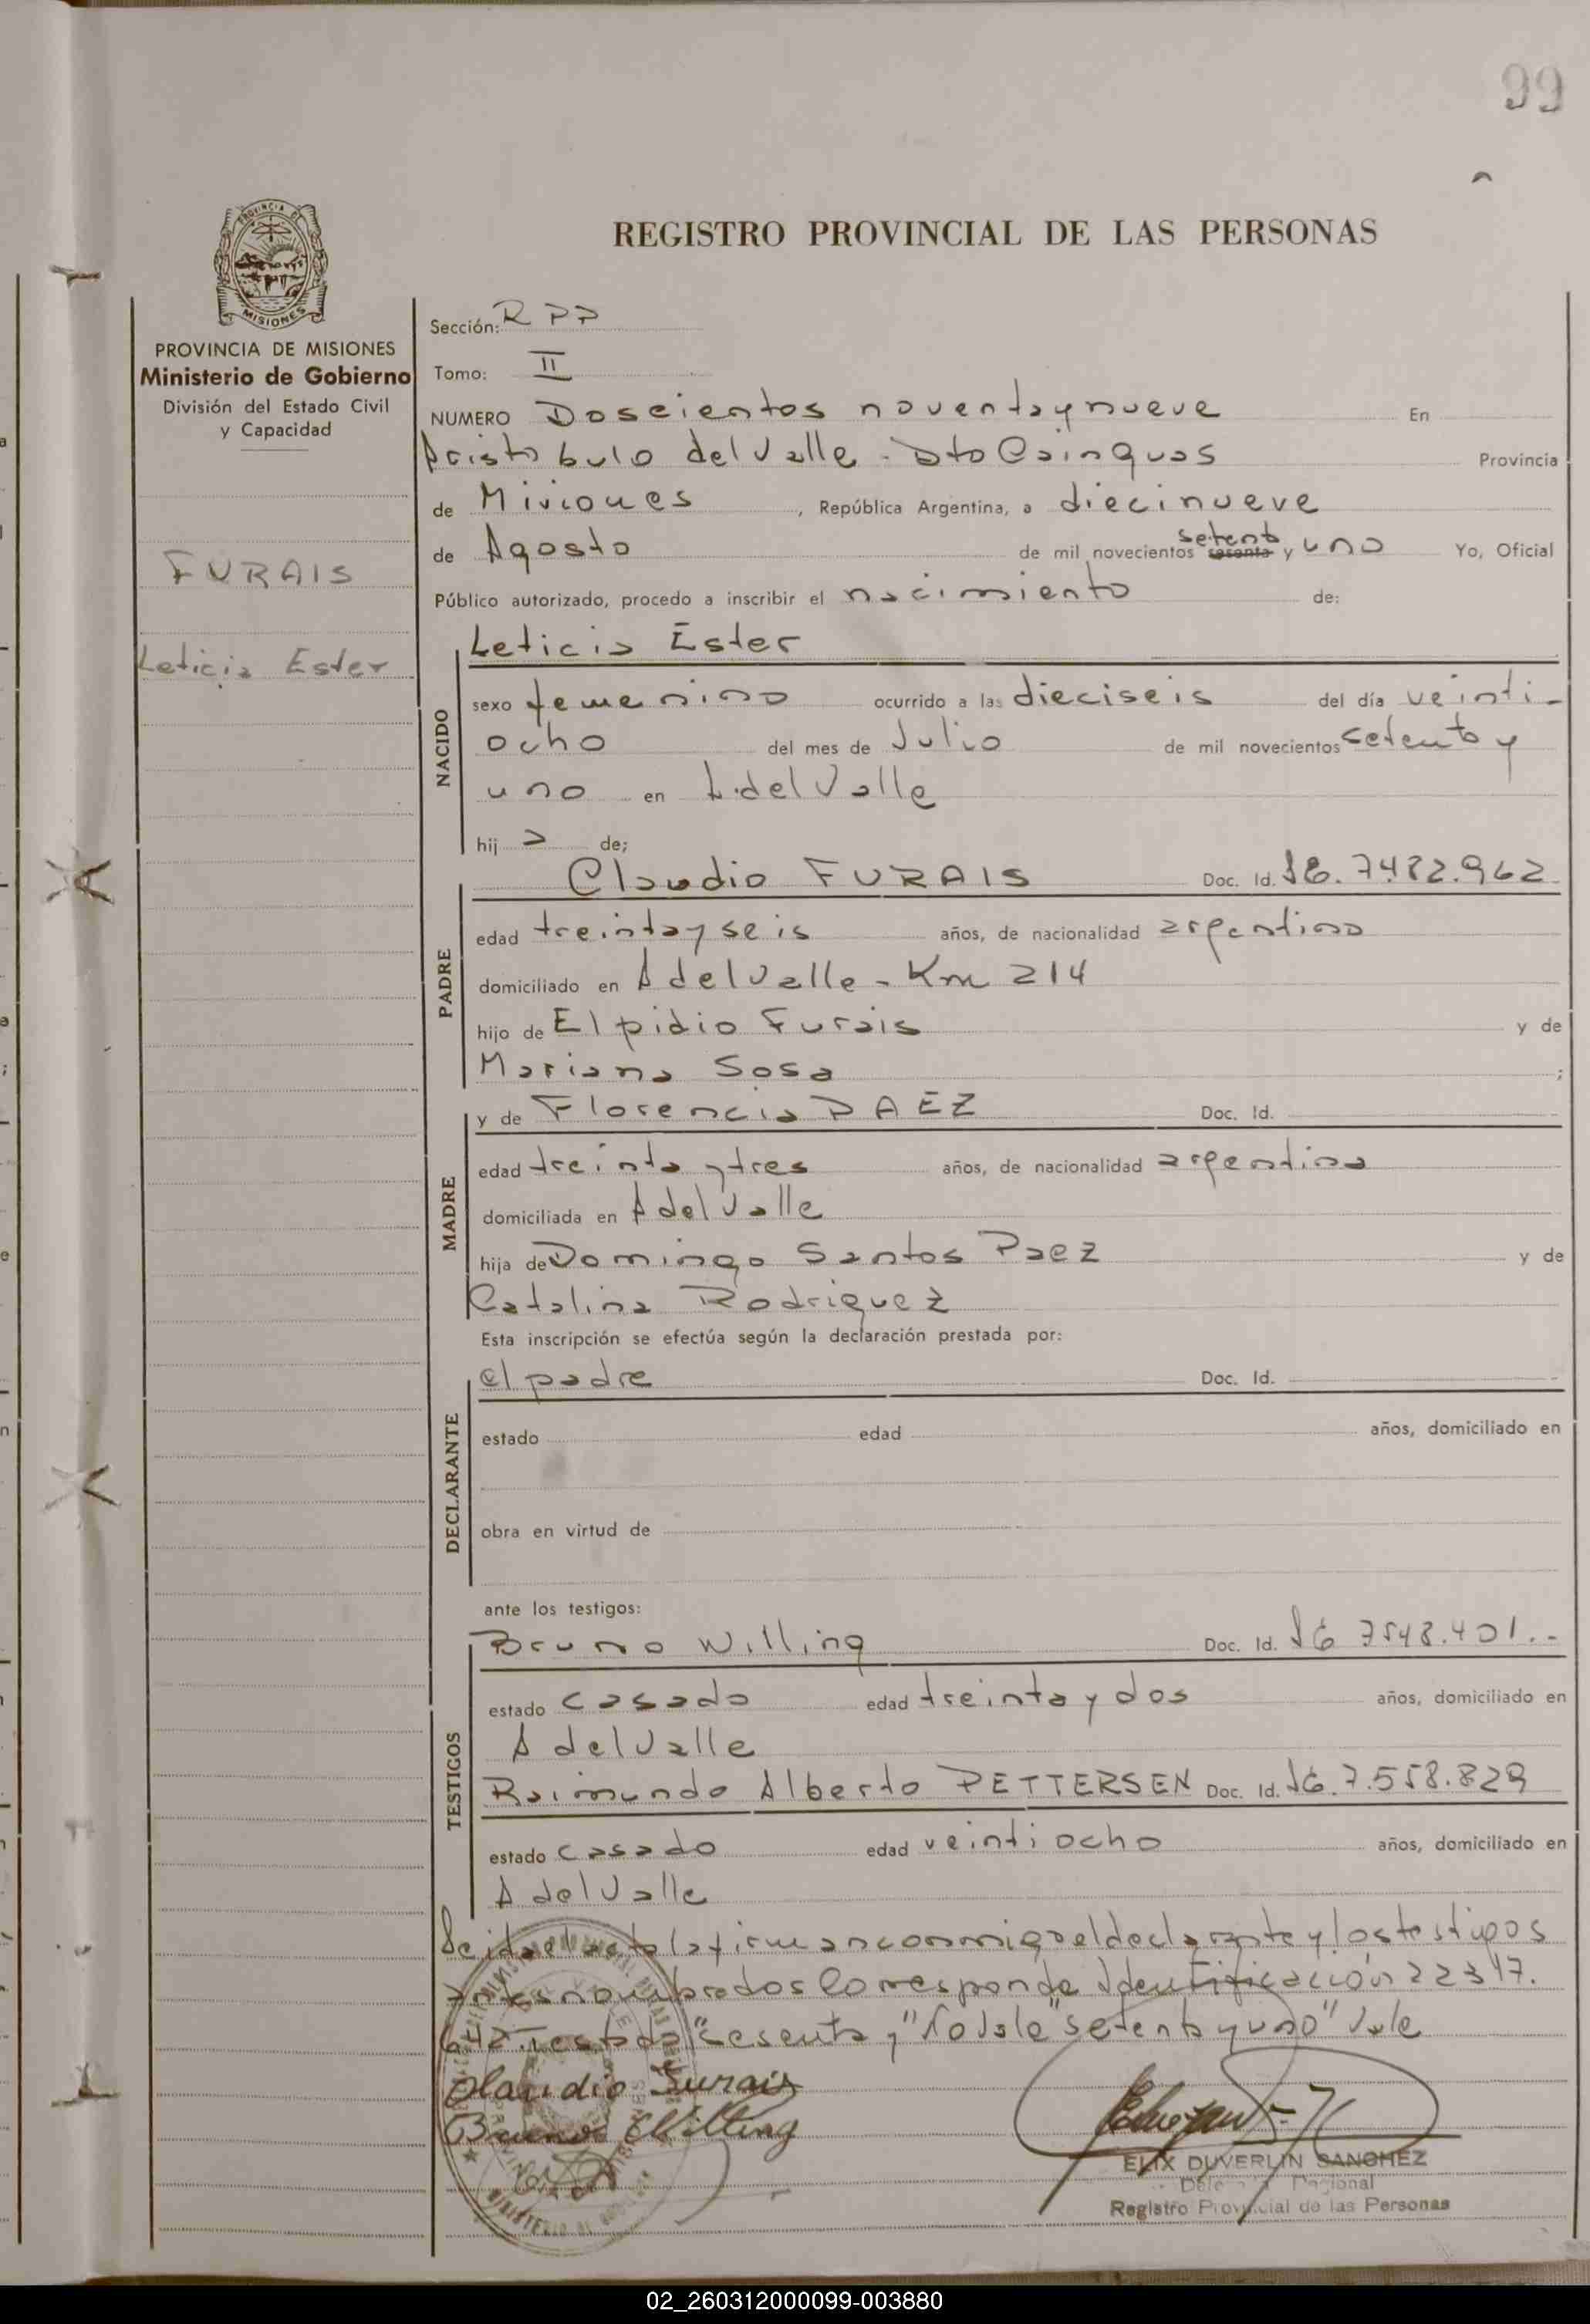 99
REGISTRO PROVINCIAL DE LAS PERSONAS
PROVINCIA DE
MISIONES
PROVINCIA DE MISIONES
Ministerio de Gobierno
División del Estado Civil
y Capacidad
FURAIS
Leticia Ester
Sección: R P P
Tomo: II
NUMERO Doscientos noventa y nueve En
Aristobulo del Valle - Dto Cainguas Provincia
de Misiones, República Argentina, a diecinueve
setenta
de Agosto de mil novecientos sesenta y uno Yo, Oficial
Público autorizado, procedo a inscribir el nacimiento de:
Leticia Ester
NACIDO
sexo femenino ocurrido a las dieciseis del día veinti-
ocho del mes de Julio de mil novecientos setenta y
uno en A. del Valle
hij a de;
Claudio FURAIS Doc. Id. 7482.962
PADRE
edad treinta y seis años, de nacionalidad argentina
domiciliado en A del Valle - Km 214
hijo de Elpidio Furais y de
Mariana Sosa ;
y de Florencia PAEZ Doc. Id.
MADRE
edad treinta y tres años, de nacionalidad argentina
domiciliada en A del Valle
hija de Domingo Santos Paez y de
Catalina Rodriguez
Esta inscripción se efectúa según la declaración prestada por:
el padre Doc. Id.
DECLARANTE
estado edad años, domiciliado en
obra en virtud de
ante los testigos:
Bruno Willing Doc. Id. 7548.401.-
TESTIGOS
estado casado edad treinta y dos años, domiciliado en
A del Valle
Raimundo Alberto PETTERSEN Doc. Id. 7.558.829
estado casado edad veintiocho años, domiciliado en
A del Valle
Leida el acta la firman conmigo el declarante y los testigos
antes nombrados Corresponde Identificación 22317.
642. Testado "sesenta y" No Vale "setenta y uno" Vale
Claudio Furais
Bruno Willing
ELIX DUVERLIN SANCHEZ
Regional
Registro Provincial de las Personas
02_260312000099-003880